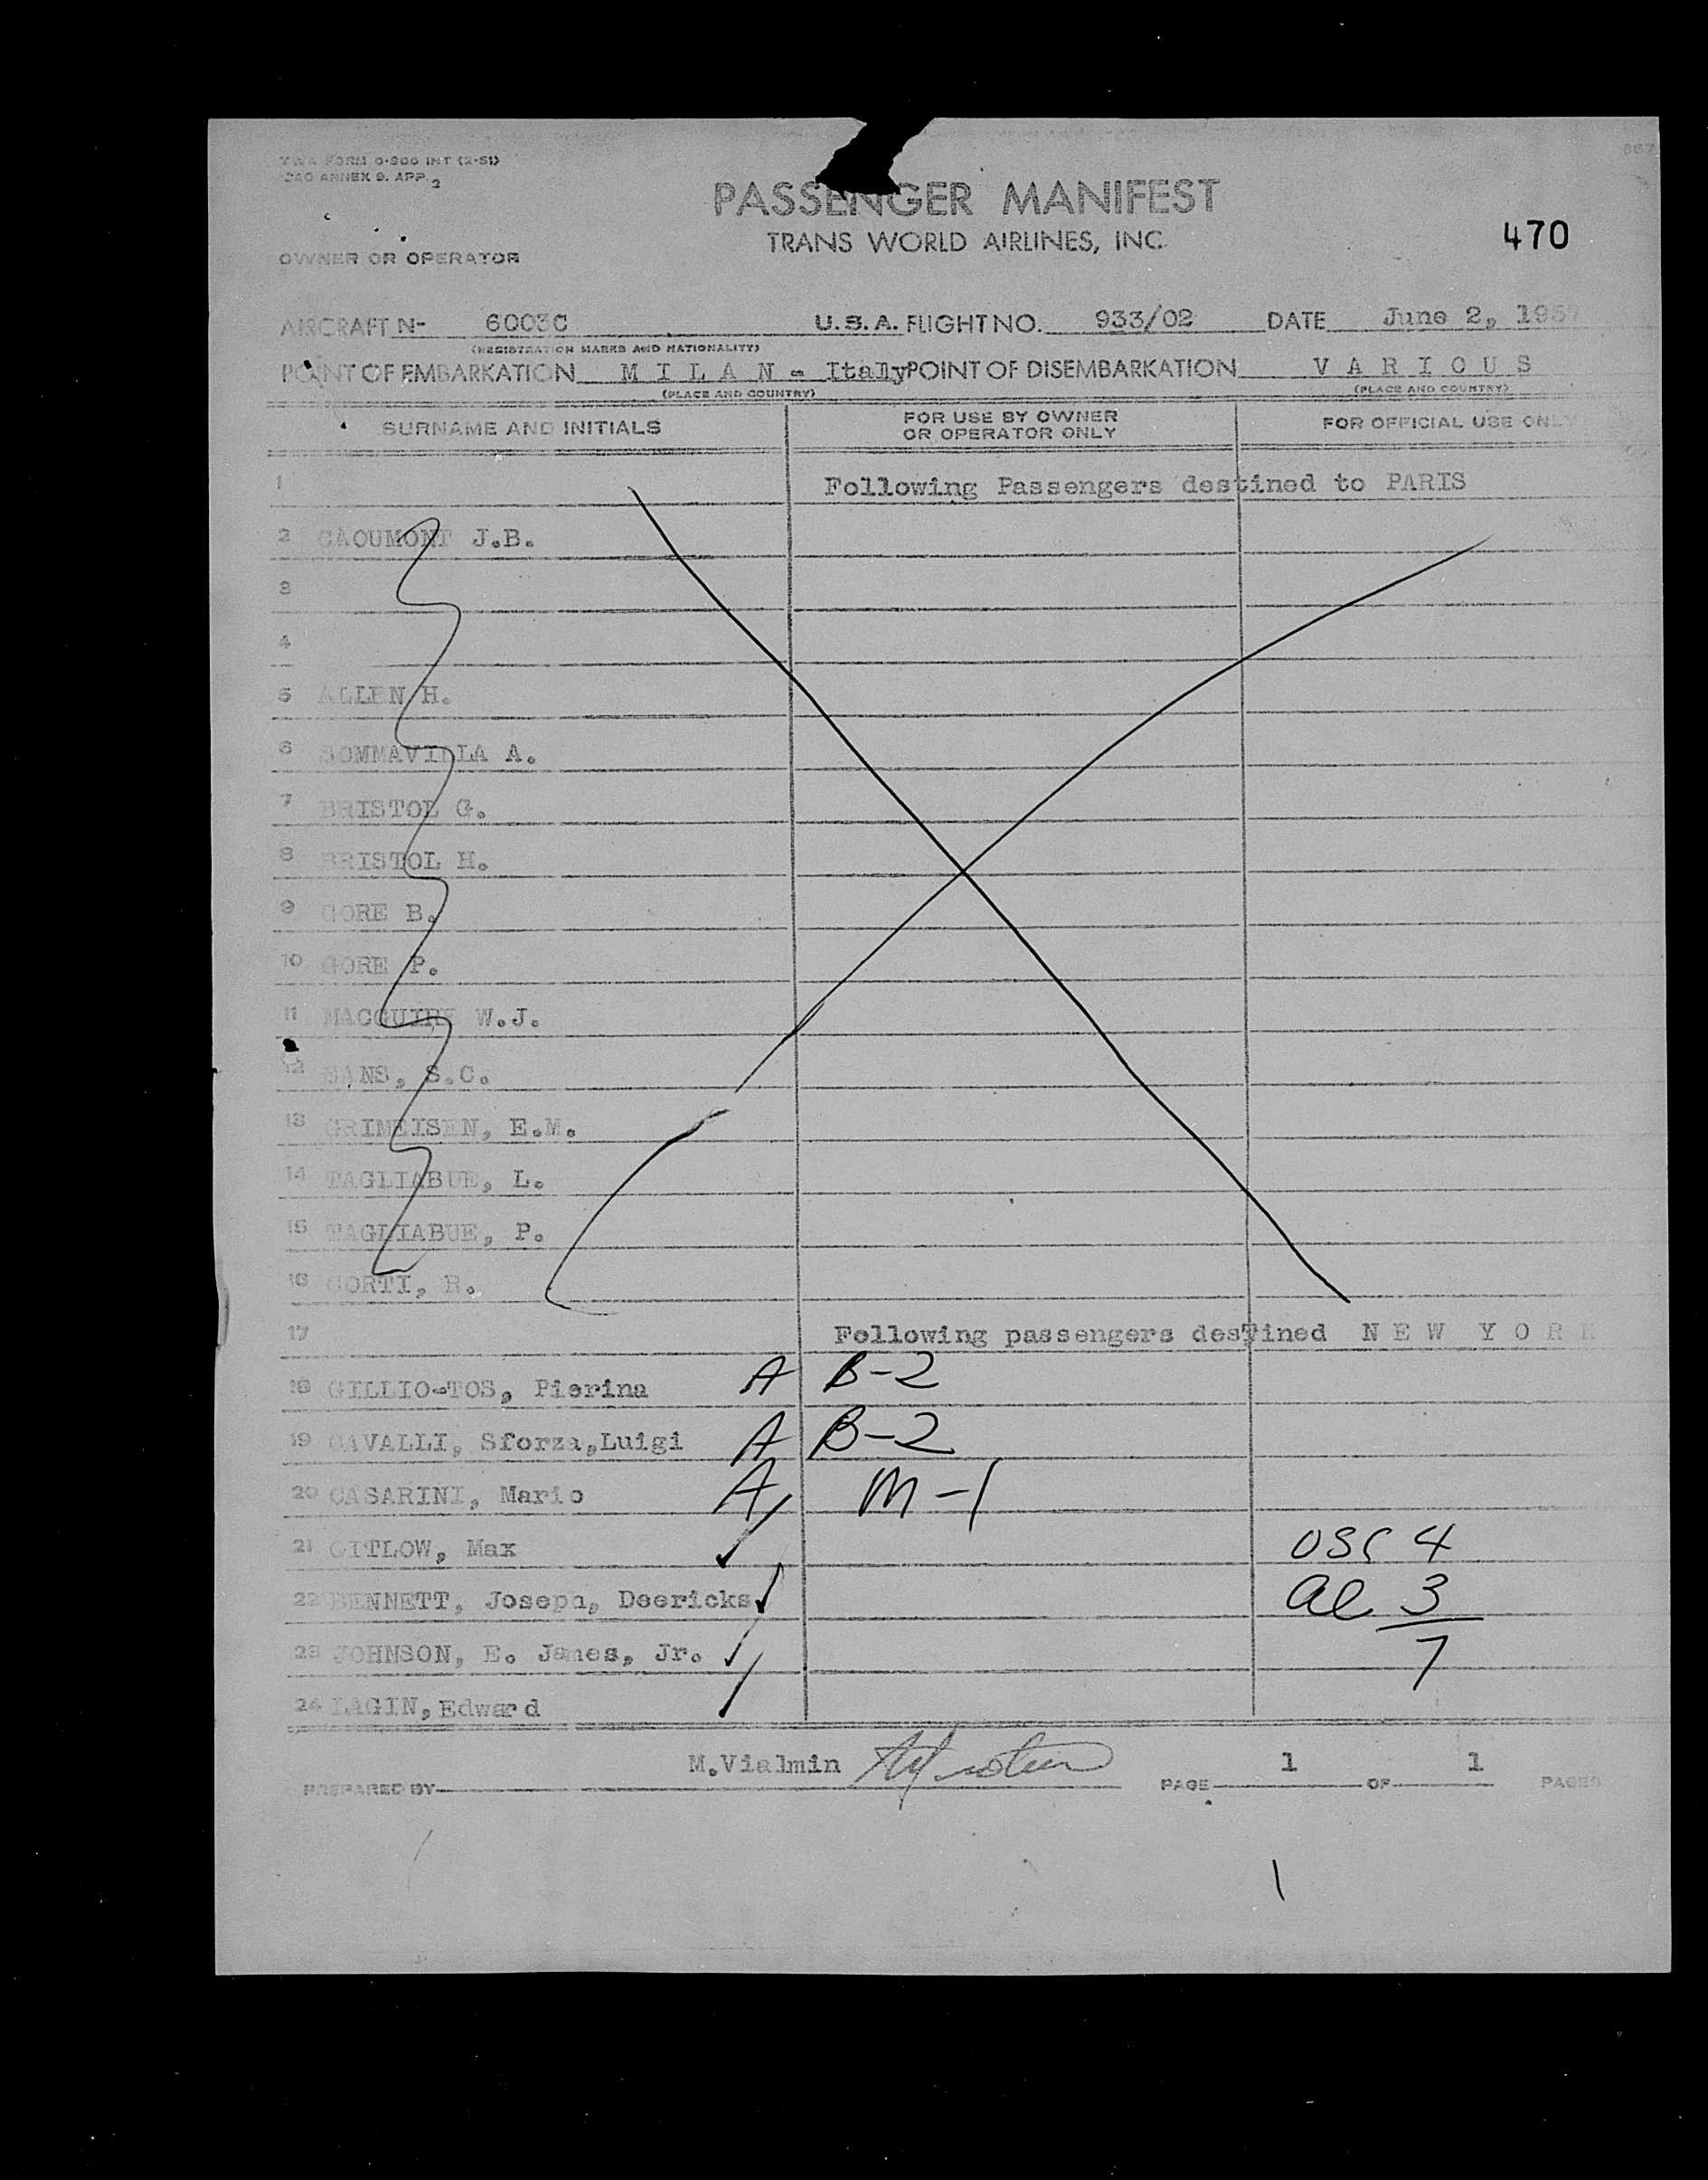 TWA FORM O-900 INT (2-51)
ICAO ANNEX 9. APP. 2
PASSENGER MANIFEST
TRANS WORLD AIRLINES, INC.
470
OWNER OR OPERATOR
AIRCRAFT N- 6003C U.S.A. FLIGHT NO. 933/02 DATE June 2, 195
(REGISTRATION MARKS AND NATIONALITY)
POINT OF EMBARKATION M I L A N - Italy POINT OF DISEMBARKATION V A R I O U S
(PLACE AND COUNTRY) (PLACE AND COUNTRY)
SURNAME AND INITIALS FOR USE BY OWNER OR OPERATOR ONLY FOR OFFICIAL USE ONLY
1 Following Passengers destined to PARIS
2 CAOUMONT J.B.
3
4
5 ALLEN H.
6 SOMMAVILLA A.
7 BRISTOL G.
8 BRISTOL H.
9 GORE B.
10 GORE P.
11 MACGUIRE W.J.
12 SANS, S.C.
13 GRIMEISEN, E.M.
14 TAGLIABUE, L.
15 TAGLIABUE, P.
16 CORTI, R.
17 Following passengers destined N E W Y O R K
18 GILLIO-TOS, Pierina A B-2
19 CAVALLI, Sforza,Luigi A B-2
20 CASARINI, Mario A M-1
21 GITLOW, Max ✓ USC 4
22 BENNETT, Joseph, Deericks ✓ al 3
23 JOHNSON, E. James, Jr. ✓ 7
24 LAGIN, Edward ✓
PREPARED BY M.Vialmin PAGE 1 OF 1 PAGES